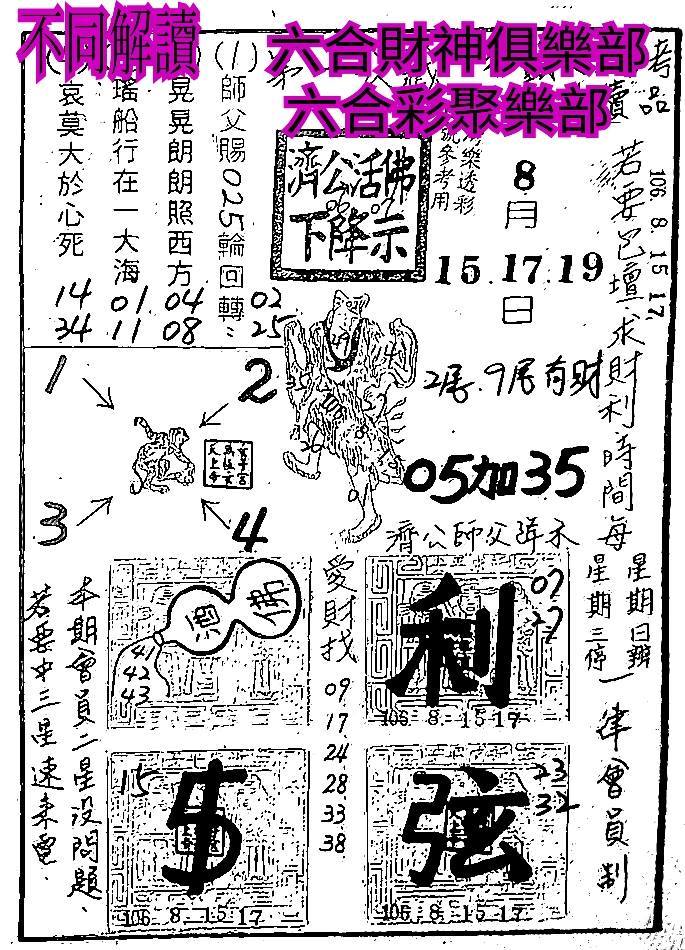 不同解讀
六合財神俱樂部
六合彩聚樂部
(1)師父賜025輪回轉
晃晃朗朗照西方
瑤船行在一大海
哀莫大於心死
02
25
04
08
01
11
14
34
濟公活佛
下降示
06 07
樂透彩
號參考用
8
月
15.17.19
日
106 8 15 17
若要包壇求財利時間每
星期日辦
星期三停
律會員制
1
2
3
4
2尾.9尾有財
05加35
濟公師父降示
酒佛
41
42
43
愛財找
09
17
24
28
33
38
利
07
27
106 8 15 17
$
15
106 8 15 17
弦
23
32
106 8 15 17
本期會員二星沒問題、
若要中三星速來電、